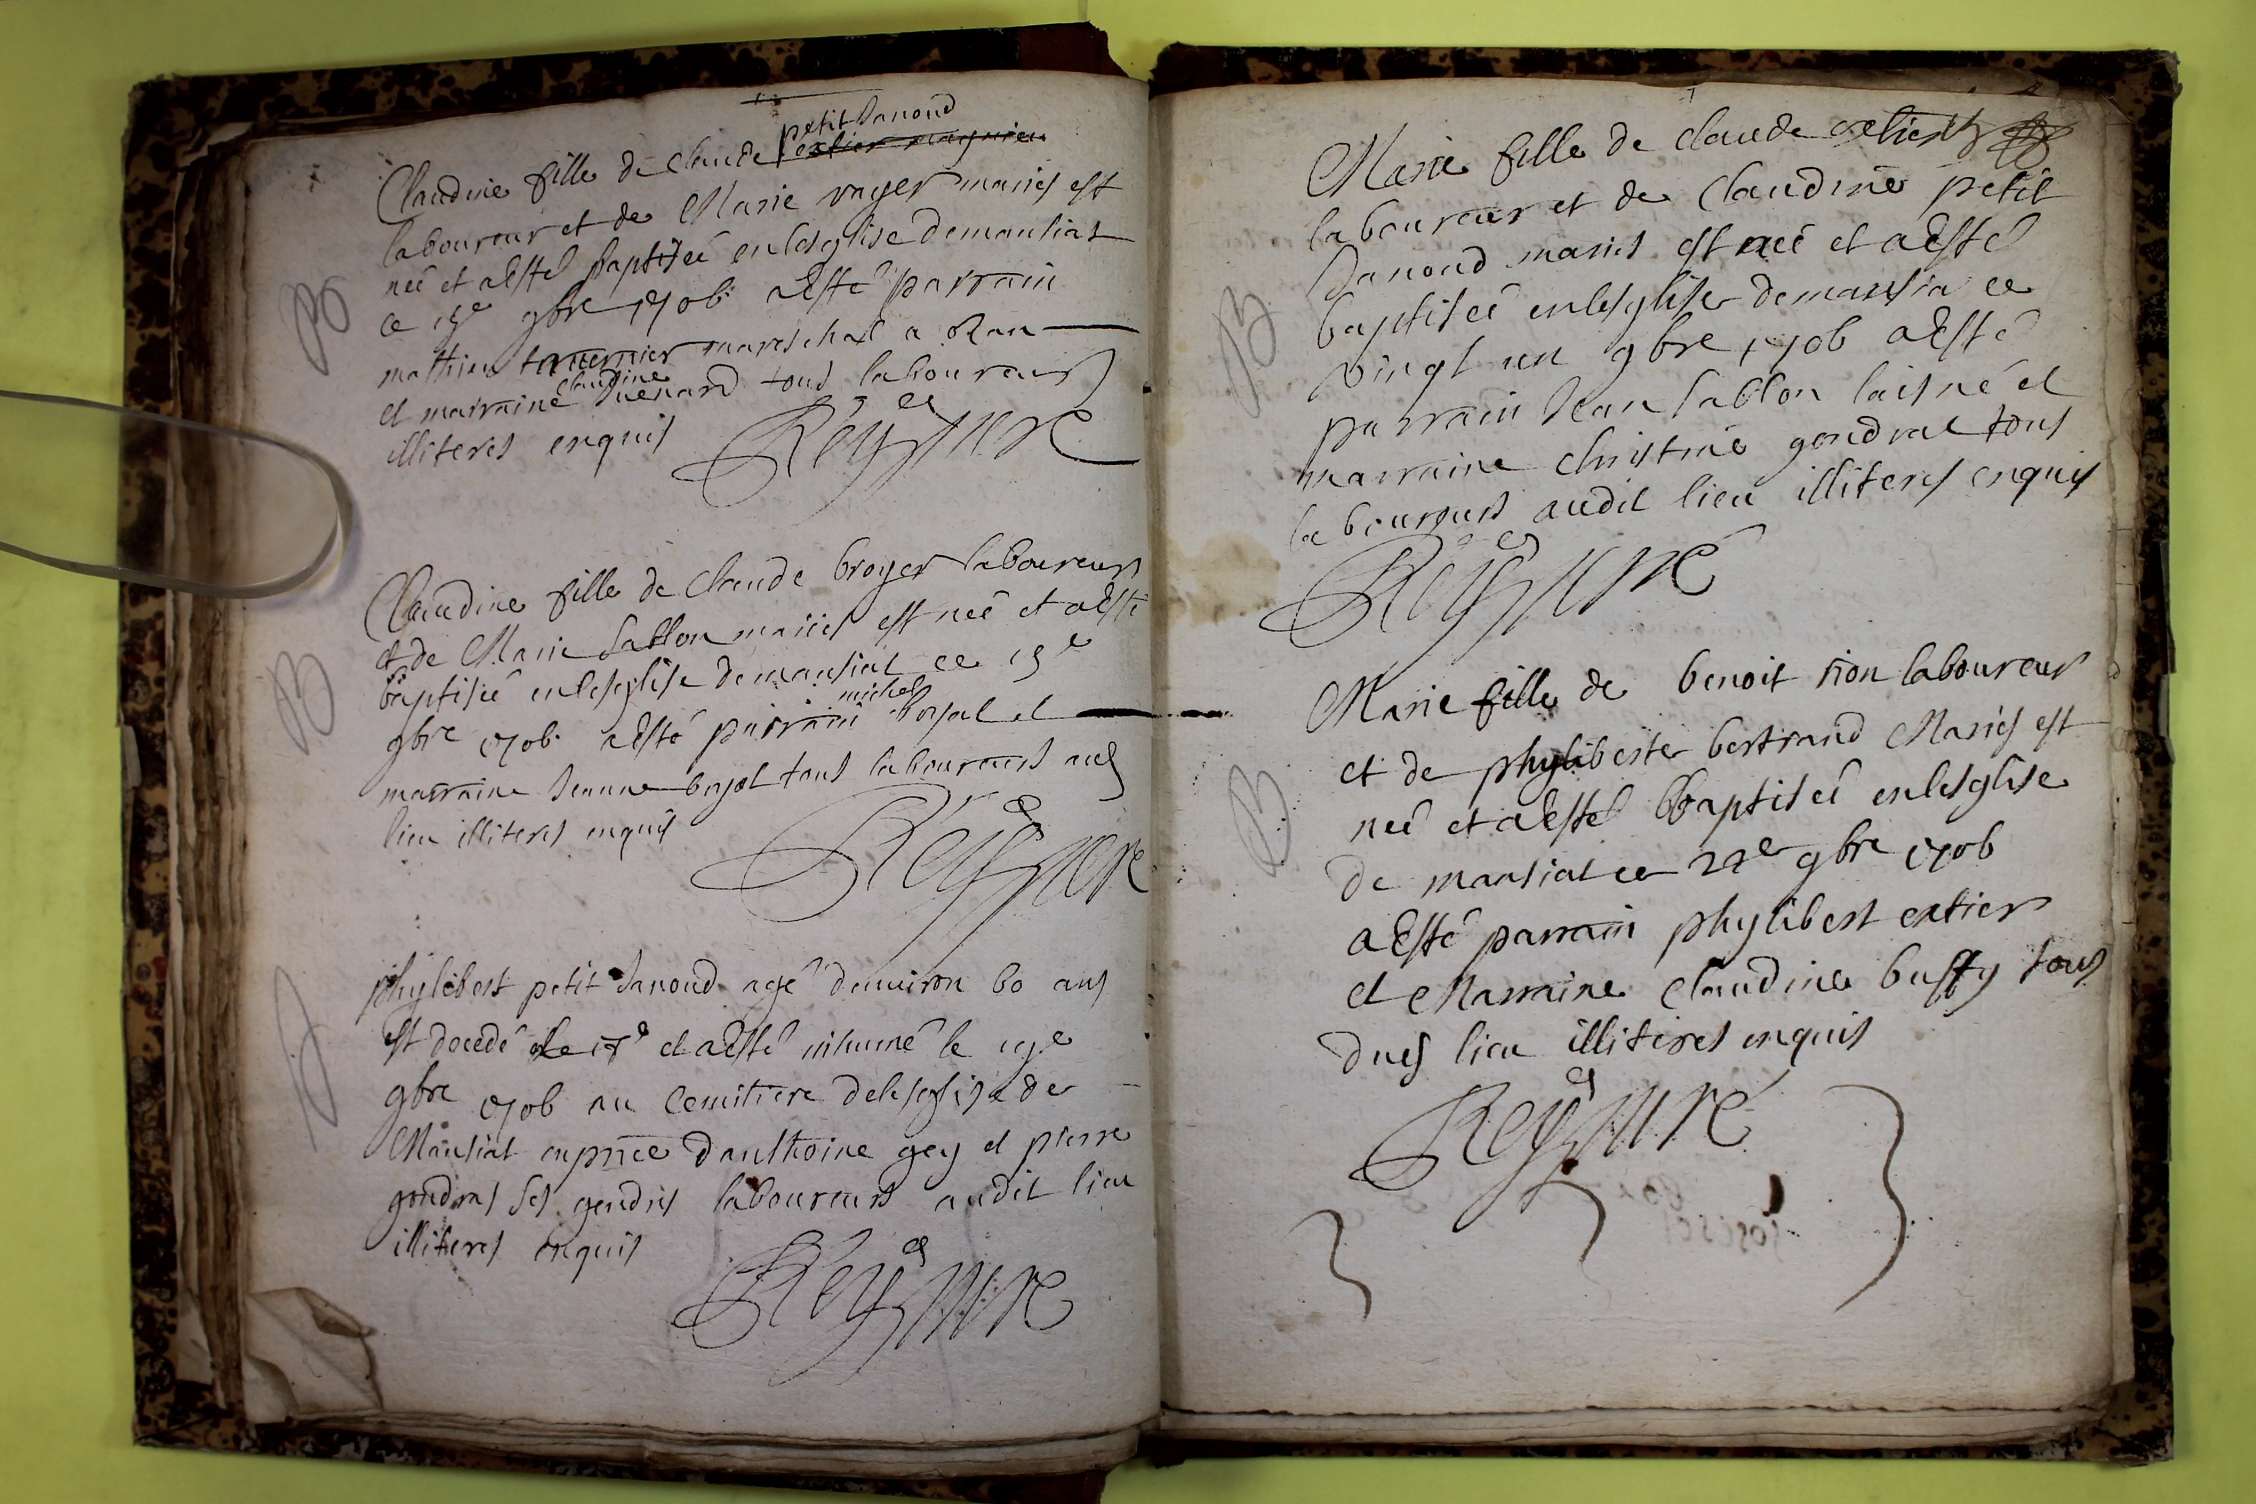 petit Janoud
Claudine fille de Claude
laboureur et de Marie vayer mariés est
née et a esté baptisée en lesglise de mansiat
ce 15e 9bre 1706 a esté parrain
mathieu mareschal a ozan
claudine
et marraine Duenard tous laboureurs
illiteres enquis
Rey curé
B
Claudine fille de Claude broyer laboureur
et de Marie sablon mariés est née et a esté
baptisée en lesglise de mansiat ce 15e
michel
9bre 1706 a esté parrain boyat et
marraine Jeanne boyat tous laboureurs aud
lieu illiteres enquis
Rey curé
B
phylibert petit Janoud agé denviron 60 ans
est decedé le et a esté inhumé le 19e
9bre 1706 au cemitiere de lesglise de
Mansiat en pnce danthoine gey et pierre
gondras ses gendres laboureurs audit lieu
illiteres enquis
Rey curé
Marie fille de claude
laboureur et de Claudine petit
Janoud mariés est née et a esté
baptisée en lesglise de mansia ce
vingt un 9bre 1706 a esté
parrain Jean sablon laisné et
marraine christine gondrat tous
laboureurs audit lieu illiteres enquis
Rey curé
B
Marie fille de benoit rion laboureur
et de phyliberte bertrand Mariés est
née et a esté baptisée en lesglise
de mansiat ce 22e 9bre 1706
a esté parrain phylibert extier
et Marraine Claudine buffy tous
dud lieu illiteres enquis
Rey curé
B